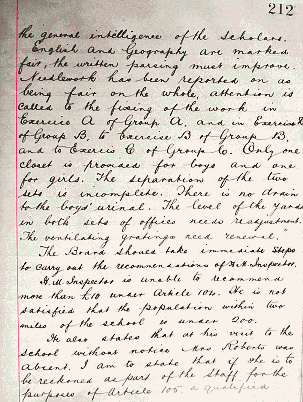 212
the general intelligence of the scholars.
English and Geography are marked
fair, the written parsing must improve.
Needlework has been reported on as
being fair on the whole, attention is
called to the fixing of the work in
Exercise A of Group A, and in Exercise
of Group B, to Exercise B of Group B,
and to Exercise C of Group C. Only one
closet is provided for boys and one
for girls. The separation of the two
sets is incomplete. There is no drain
to the boys' urinal. The level of the yards
in both sets of offices needs readjustment.
The ventilating gratings need renewal."
The Board should take immediate steps
to carry out the recommendations of H.M. Inspector.
H.M. Inspector is unable to recommend
more than £10 under Article 104. He is not
satisfied that the population within two
miles of the school is under 200.
He also states that at his visit to the
school without notice Mrs Roberts was
absent. I am to state that if she is to
be reckoned as part of the Staff for the
purposes of Article 105 a qualified